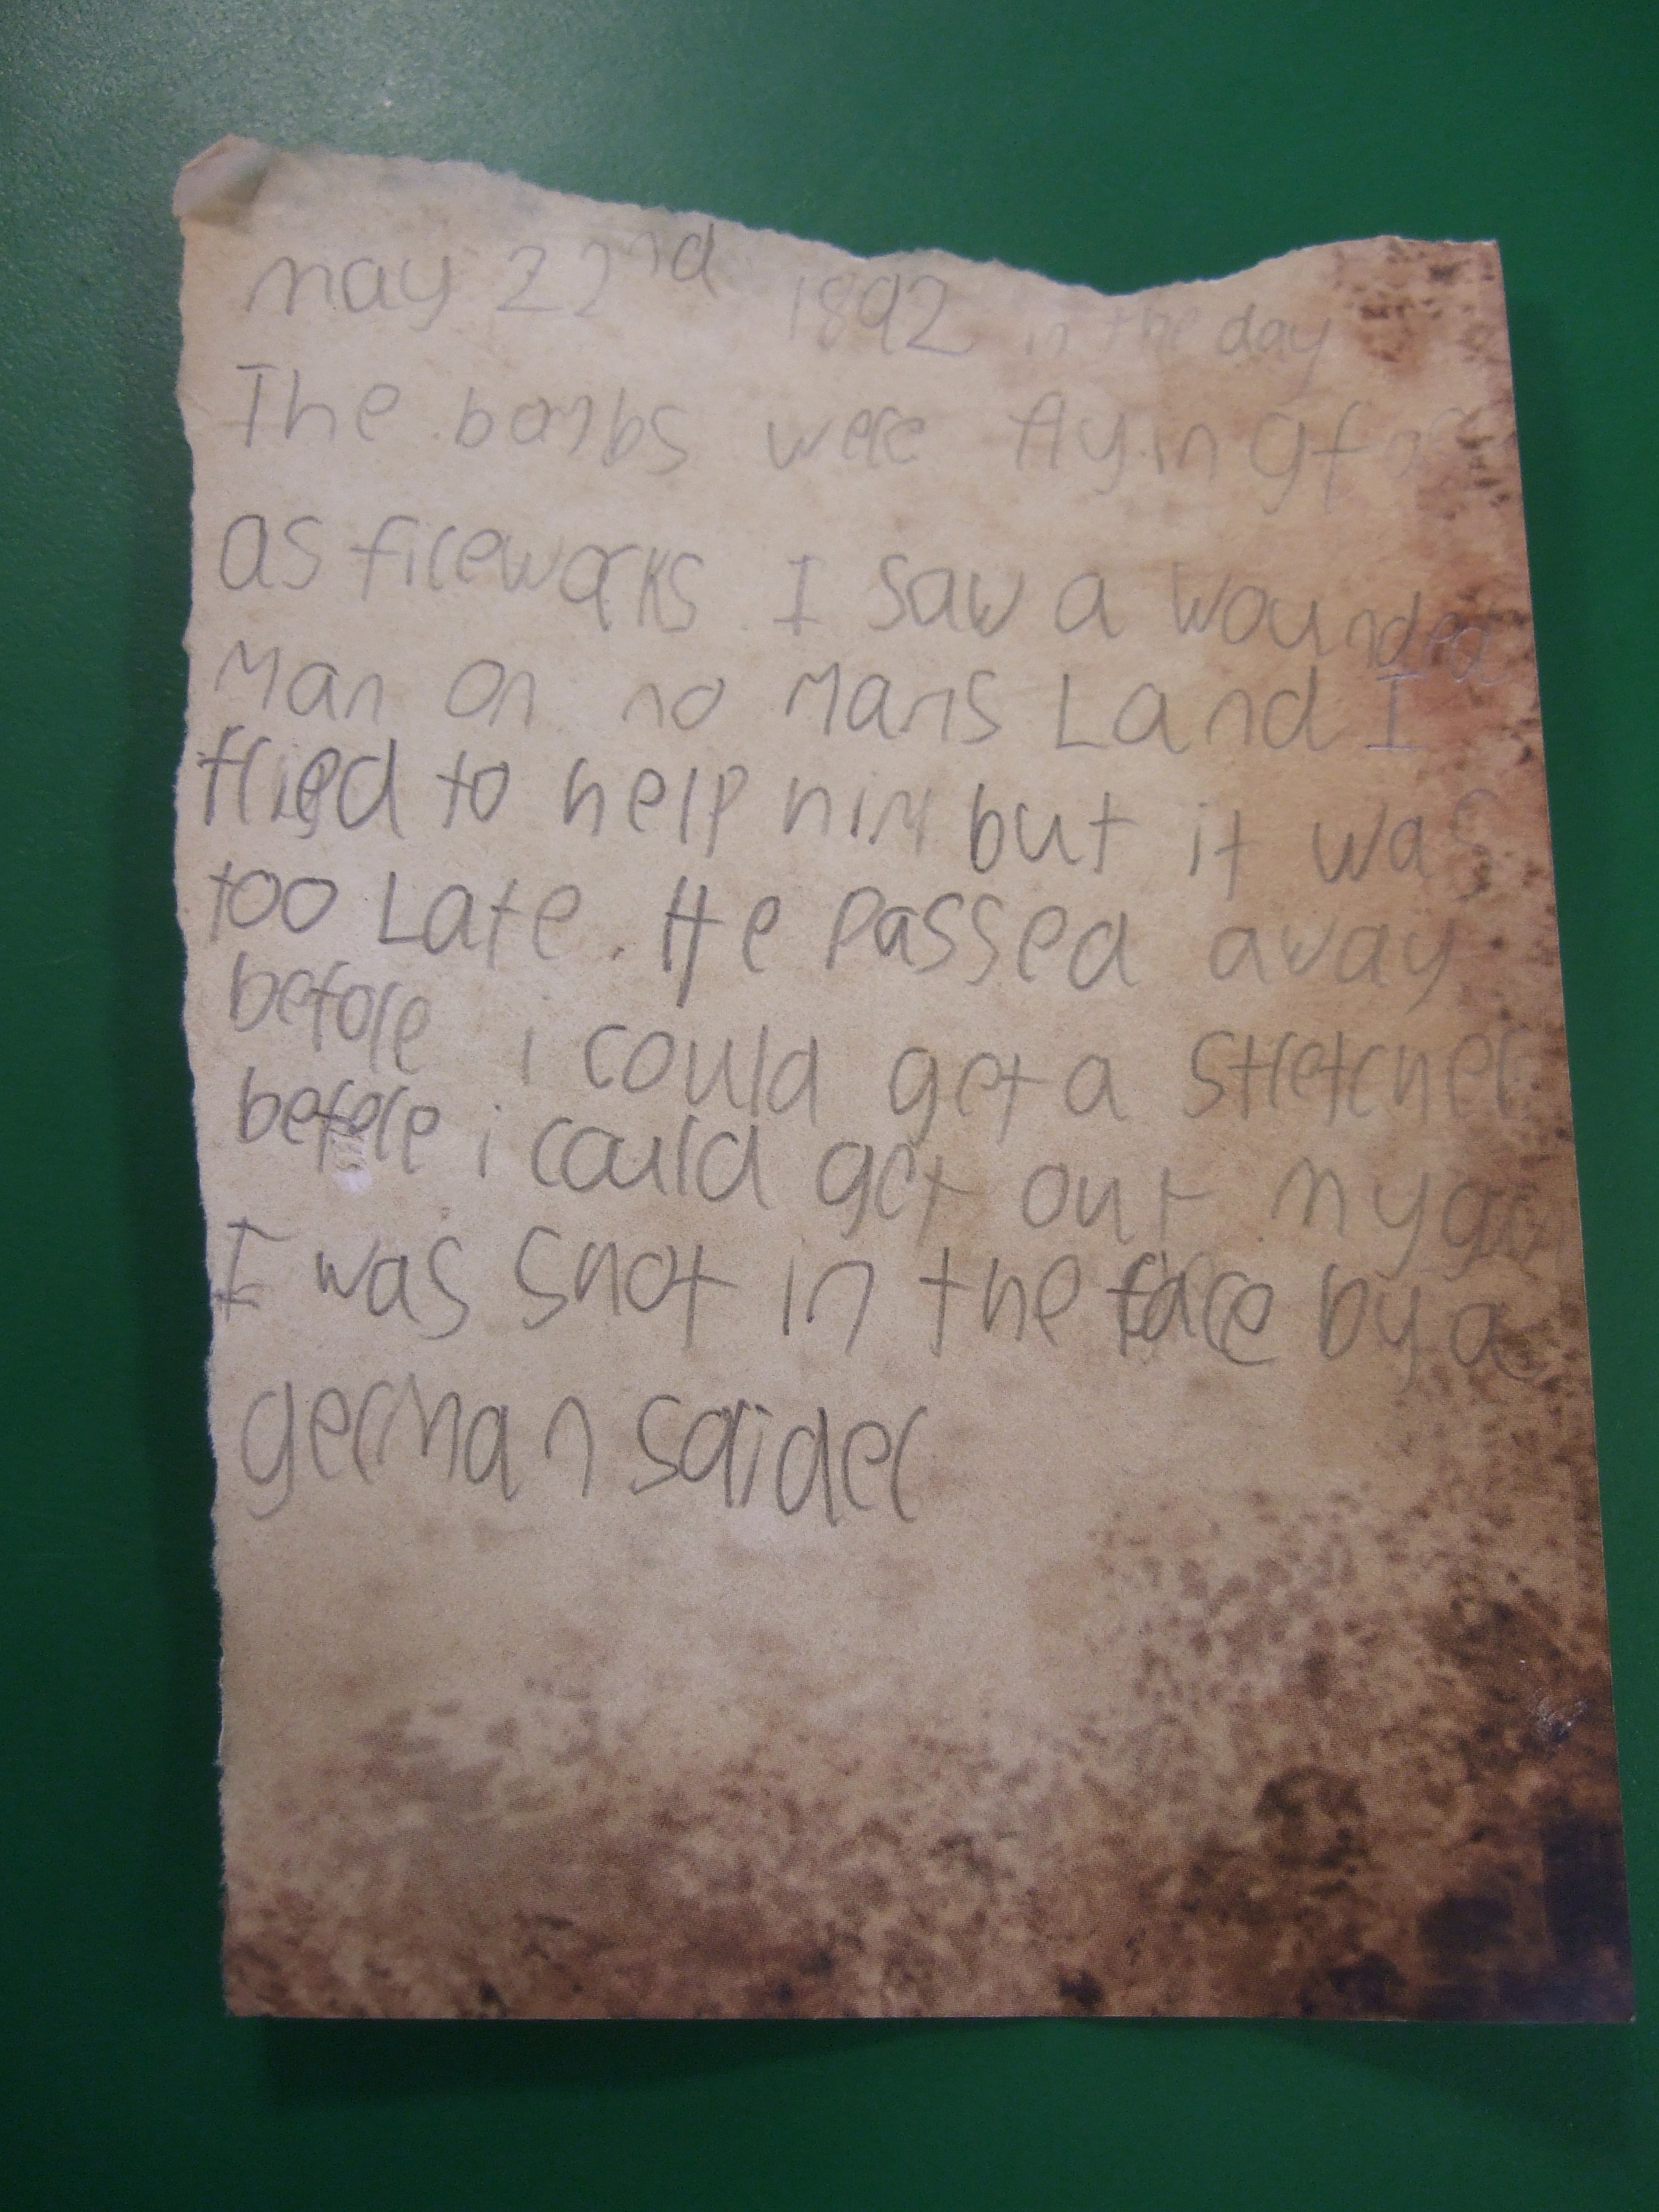 may 22nd 1892 in the day
The bombs were flying
as fireworks. I saw a wounded
Man on no Mans Land I
tried to help him but it was
too Late. He Passed away
before i could get a stretcher
before i could get out my gun
I was shot in the face by a
german soilder